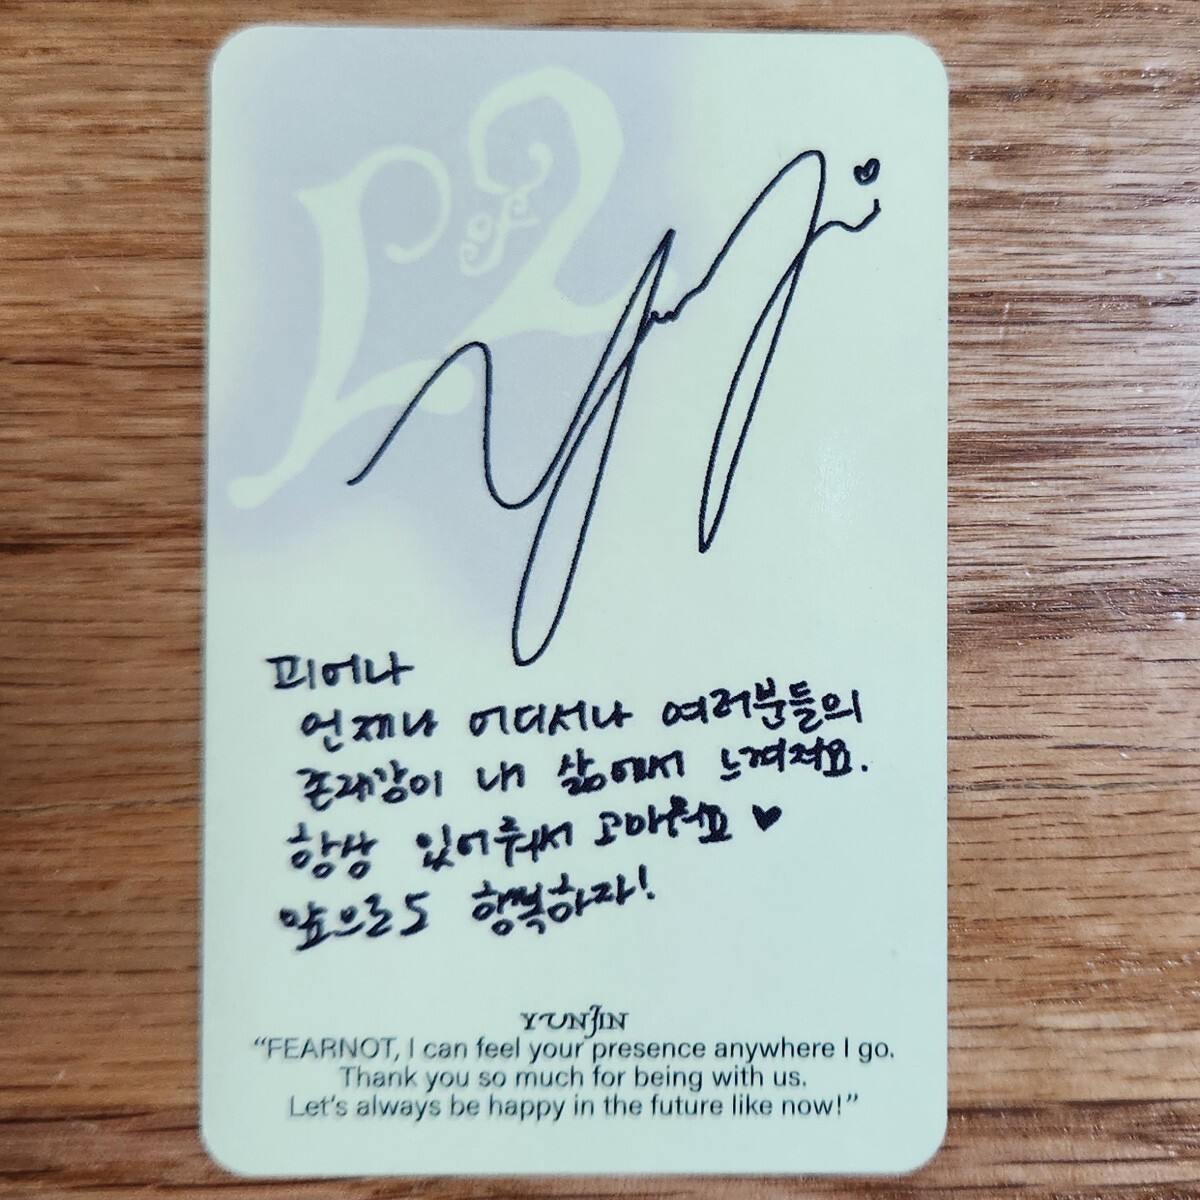 L of 2
Yunjin
피어나
언제나 어디서나 여러분들의
존재감이 내 삶에서 느껴져요.
항상 있어줘서 고마워요 ♥
앞으로도 행복하자!
YUNJIN
“FEARNOT, I can feel your presence anywhere I go.
Thank you so much for being with us.
Let's always be happy in the future like now!”